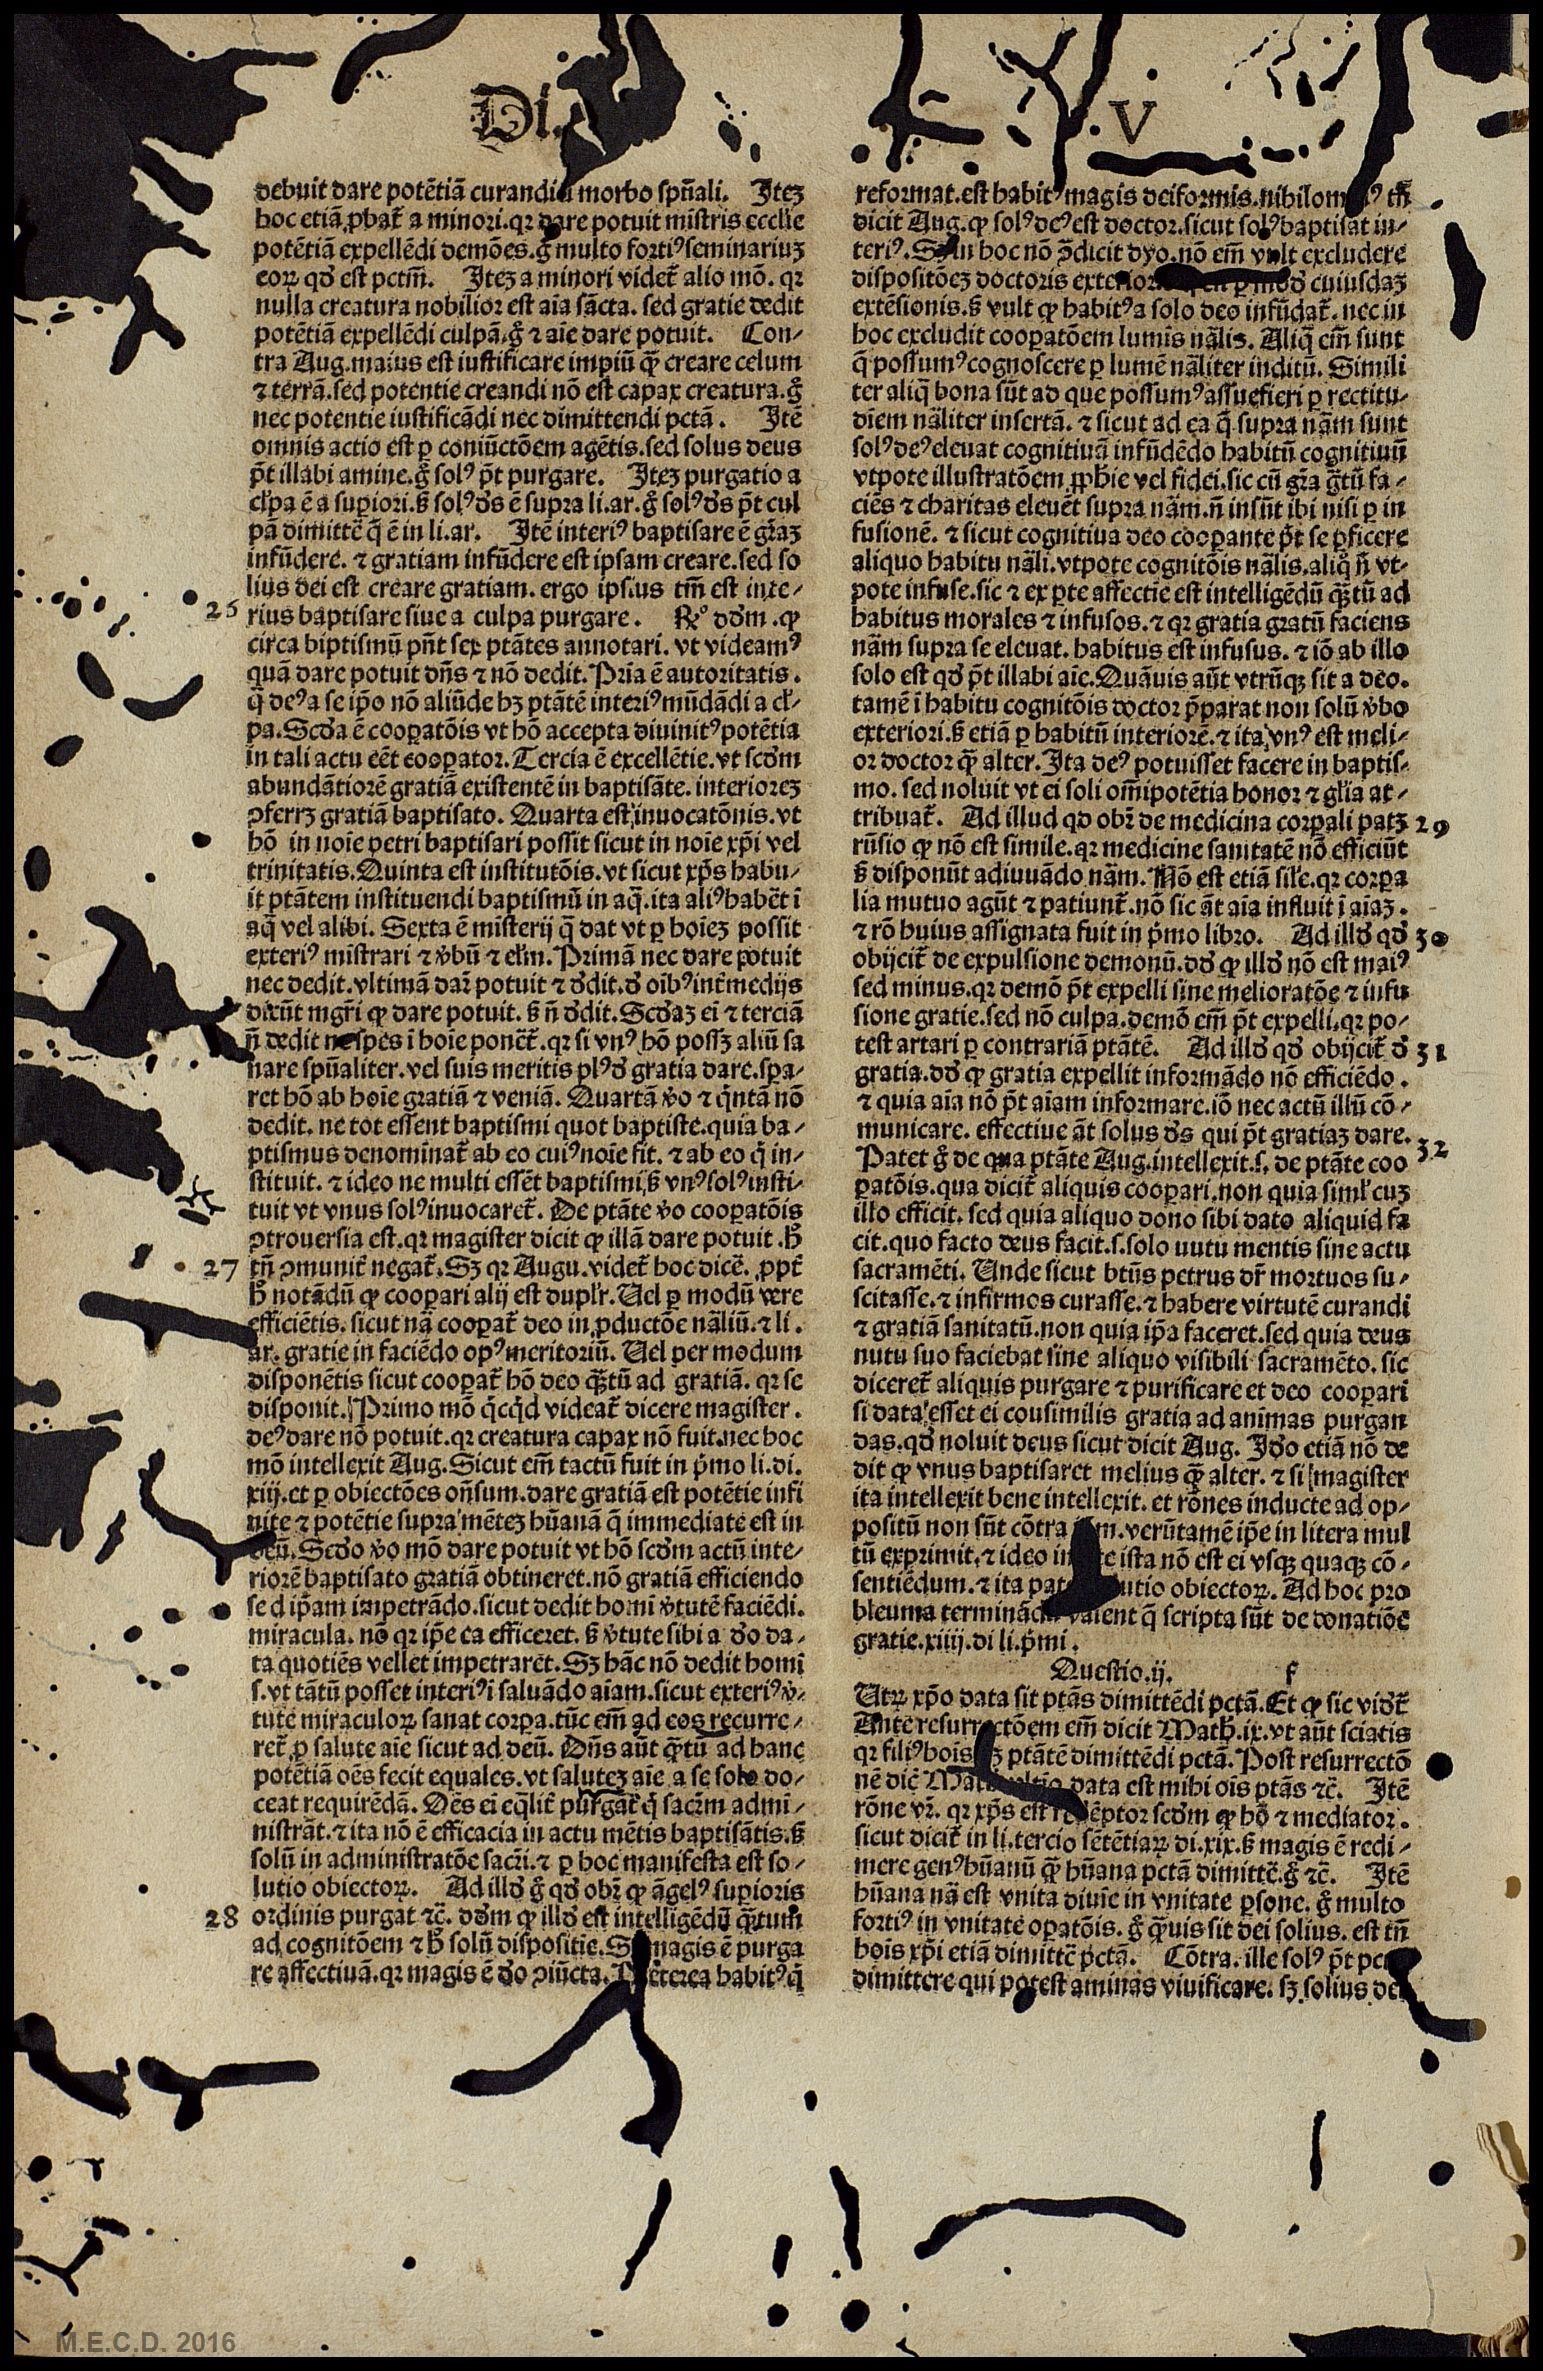 Di.
.V
debuit dare potētiā curandi a morbo spūali. Itez
hoc etiā ꝓbat̃ a minori. qꝛ dare potuit mīstris ecclīe
potētiā expellēdi demōes. g̊ multo fortiꝰ seminariuz
eoꝝ qd̓ est pctm̄. Itez a minori videt̃ alio mō. qꝛ
nulla creatura nobilior est aīa sācta. sed gratie dedit
potētiā expellēdi culpā. g̊ ⁊ aīe dare potuit. Con-
tra Aug. maius est iustificare impiū ꝙ̄ creare celum
⁊ terrā. sed potentie creandi nō est capax creatura. g̊
nec potentie iustificādi nec dimittendi pctā. Itē
omnis actio est ꝑ coniūctōem agētis. sed solus deus
p̄t illabi amine. g̊ solꝰ p̄t purgare. Itez purgatio a
cl̓pa ē a supiori. s̄ solꝰ ds̓ ē supra li. ar. g̊ solꝰ ds̓ p̄t cul
pā dimittē q̄ ē in li. ar. Itē interiꝰ baptisare ē gr̄az
infūdere. ⁊ gratiam infūdere est ipsam creare. sed so
lius dei est creare gratiam. ergo ipsius tm̄ est inte-
26 rius baptisare siue a culpa purgare. R̄º dd̓m. ꝙ
circa baptismū pn̄t sex ptātes annotari. vt videamꝰ
quā dare potuit dn̄s ⁊ nō dedit. Pria ē autoritatis.
q̄ deꝰ a se ip̄o nō aliūde hꝫ ptātē interiꝰ mūdādi a cl̓-
pa. Scd̓a ē cooꝑatōis vt hō accepta diuinitꝰ potētia
in tali actu eēt cooꝑator. Tercia ē excellētie. vt scd̓m
abundātiorē gratiā existentē in baptisāte. interiorez
ꝯferrꝫ gratiā baptisato. Quarta est inuocatōnis. vt
hō in noīe petri baptisari possit sicut in noīe xp̄i vel
trinitatis. Quinta est institutōis. vt sicut xp̄s habu-
it ptātem instituendi baptismū in aq̄. ita aliꝰ habēt ī
aq̄ vel alibi. Sexta ē misterij q̄ dat vt ꝑ hoīez possit
exteriꝰ mistrari ⁊ v̓bū ⁊ el̓m. Primā nec dare potuit
nec dedit. vltimā dar̄ potuit ⁊ dd̓it. d̓ oībꝰ int̓medijs
dixūt mgr̄i ꝙ dare potuit. s̄ n̄ dd̓it. Scd̓az ei ⁊ terciā
n̄ dedit ne spes ī hoīe ponēt̃. qꝛ si vnꝰ hō possꝫ aliū sa
nare spūaliter. vel suis meritis plꝰ d̓ gratia dare. spa-
ret hō ab hoīe gratiā ⁊ veniā. Quartā v̓o ⁊ q̓ntā nō
dedit. ne tot essent baptismi quot baptiste. quia ba-
ptismus denominat̃ ab eo cuiꝰ noīe fit. ⁊ ab eo q̓ in-
stituit. ⁊ ideo ne multi essēt baptismi. s̄ vnꝰ solꝰ insti-
tuit vt vnus solꝰ inuocaret̃. De ptāte v̓o cooꝑatōis
ꝯtrouersia est. qꝛ magister dicit ꝙ illā dare potuit. h̊
27 tn̄ ꝯmunit̓ negat̃. Sꝫ qꝛ Augu. videt̃ hoc dicē. ꝓpt̓
h̊ notādū ꝙ cooꝑari alij est dupl̓r. Uel ꝑ modū vere
efficiētis. sicut nā cooꝑat̃ deo in ꝓductōe nāliū. ⁊ li.
ar. gratie in faciēdo opꝰ meritoriū. Uel per modum
disponētis sicut cooꝑat̃ hō deo ꝙ̄tū ad gratiā. qꝛ se
disponit. Primo mō q̓cq̓d videat̃ dicere magister.
deꝰ dare nō potuit. qꝛ creatura capax nō fuit. nec hoc
mō intellexit Aug. Sicut em̄ tactū fuit in p̓mo li. di.
xiij. et ꝑ obiectōes on̄sum. dare gratiā est potētie infi
nite ⁊ potētie supra mētez hūanā q̄ immediate est in
deū. Scd̓o v̓o mō dare potuit vt hō scd̓m actū inte-
riorē baptisato gratiā obtineret. nō gratiā efficiendo
sed ip̄am impetrādo. sicut dedit homī v̓tutē faciēdi.
miracula. nō qꝛ ip̄e ea efficeret. s̄ v̓tute sibi a d̓o da-
ta quotiēs vellet impetrarēt. Sꝫ hāc nō dedit homī
s. vt tātū posset interiꝰ ī saluādo aīam. sicut exteriꝰ v̓-
tute miraculoꝝ sanat corꝑa. tūc em̄ ad eos recurre-
ret̃ ꝓ salute aīe sicut ad deū. Dn̄s aūt ꝙ̄tū ad hanc
potētiā oēs fecit equales. vt salutez aīe a se solo do-
ceat requirēdā. Oēs ei eq̄lit̓ purgāt q̓ sacr̄m admi-
nistrāt. ⁊ ita nō ē efficacia in actu mētis baptisātis. s̄
solū in administratōe sacr̄i. ⁊ ꝑ hoc manifesta est so-
lutio obiectoꝝ. Ad illd̓ g̊ qd̓ obr̄ ꝙ āgelꝰ supioris
28 ordinis purgat ⁊c̄. dd̓m ꝙ illd̓ est intelligēdū ꝙ̄tum
ad cognitōem ⁊ h̊ solū dispositie. magis ē purga
re affectiuā. qꝛ magis ē d̓o ꝯiūcta. habitꝰ q̓
reformat. est habitꝰ magis deiformis. tn̄
dicit Aug. ꝙ solꝰ deꝰ est doctor. sicut solꝰ baptisat in-
teriꝰ. hoc nō p̄dicit dyo. nō em̄ vult excludere
dispositōez doctoris cuiusdaz
extēsionis. s̄ vult ꝙ habitꝰ a solo deo infūdat̃. nec in
hoc excludit cooꝑatōem lumis nālis. Aliq̄ em̄ sunt
q̄ possumꝰ cognoscere ꝑ lumē nāliter inditū. Simili
ter aliq̄ bona sūt ad que possumꝰ assuefieri ꝑ rectitu-
dīem nāliter insertā. ⁊ sicut ad ea q̄ supra nām sunt
solꝰ deꝰ eleuat cognitiuā infūdēdo habitū cognitiuū
vtpote illustratōem ꝓph̓ie vel fidei. sic cū gr̄a gr̄tū fa-
ciēs ⁊ charitas eleuēt supra nām. n̄ insūt ibi nisi ꝑ in
fusionē. ⁊ sicut cognitiua deo cooꝑante p̄t se ꝑficere
aliquo habitu nāli. vtpote cognitōis nālis. aliq̊ n̄ vt-
pote infuse. sic ⁊ ex ꝑte affectie est intelligēdū ꝙ̄tū ad
habitus morales ⁊ infusos. ⁊ qꝛ gratia gratū faciens
nām supra se eleuat. habitus est infusus. ⁊ iō ab illo
solo est qd̓ p̄t illabi aīe. Quāuis aūt vtrūqꝫ sit a deo.
tamē ī habitu cognitōis doctor p̄parat non solū v̓bo
exteriori. s̄ etiā ꝑ habitū interiorē. ⁊ ita vnꝰ est meli-
or doctor ꝙ̄ alter. Ita deꝰ potuisset facere in baptis-
mo. sed noluit vt ei soli om̄ipotētia honor ⁊ gl̓ia at-
tribuat̃. Ad illud qd obr̄ de medicina corꝑali patꝫ 29
rūsio ꝙ nō est simile. qꝛ medicine sanitatē nō efficiūt
s̄ disponūt adiuuādo nām. Nō est etiā sil̓e. qꝛ corꝑa
lia mutuo agūt ⁊ patiunt̃. nō sic āt aīa influit ī aīaz.
⁊ rō huius assignata fuit in p̓mo libro. Ad illd̓ qd̓ 30
obijcit̃ de expulsione demonū. dd̓ ꝙ illd̓ nō est maiꝰ
sed minus. qꝛ demō p̄t expelli sine melioratōe ⁊ infu
sione gratie. sed nō culpa. demō em̄ p̄t expelli. qꝛ po-
test artari ꝑ contrariā ptātē. Ad illd̓ qd̓ obijcit̃ d̓ 31
gratia. dd̓ ꝙ gratia expellit informādo nō efficiēdo.
⁊ quia aīa nō p̄t aīam informare. iō nec actū illū cō-
municare. effectiue āt solus ds̓ qui p̄t gratiaz dare.
Patet g̊ de qua ptāte Aug. intellexit. s. de ptāte coo 32
ꝑatōis. qua dicit̃ aliquis cooꝑari. non quia siml̓ cuz
illo efficit. sed quia aliquo dono sibi dato aliquid fa
cit. quo facto deus facit. s. solo nutu mentis sine actu
sacramēti. Unde sicut btūs petrus dr̄ mortuos su-
scitasse. ⁊ infirmos curasse. ⁊ habere virtutē curandi
⁊ gratiā sanitatū. non quia ip̄a faceret. sed quia deus
nutu suo faciebat sine aliquo visibili sacramēto. sic
diceret̃ aliquis purgare ⁊ purificare et deo cooꝑari
si data esset ei consimilis gratia ad animas purgan
das. qd̓ noluit deus sicut dicit Aug. Id̓o etiā nō de
dit ꝙ vnus baptisaret melius ꝙ̄ alter. ⁊ si magister
ita intellexit bene intellexit. et rōnes inducte ad op-
positū non sūt cōtra verūtamē ip̄e in litera mul
tū exprimit. ⁊ ideo ista nō est ei vsqꝫ quaqꝫ cō-
sentiēdum. ⁊ ita obiectoꝝ. Ad hoc pro
bleuma q̄ scripta sūt de donatiōe
gratie. xiiij. di li. p̓mi.
Questio. ij. f
Utꝝ xp̄o data sit ptās dimittēdi pctā. Et ꝙ sic vidt̃
Ante resurrectōem em̄ dicit Math̓. ix. vt aūt sciatis
qꝛ filiꝰ hoīs ptātē dimittēdi pctā. Post resurrectō
nē dic̄ data est mihi oīs ptās ⁊c̄. Itē
rōne vr̄. qꝛ xp̄s est scd̓m ꝙ hō ⁊ mediator.
sicut dicit̃ in li. tercio sētētiaꝝ di. xix. s̄ magis ē redi-
mere genꝰ hūanū ꝙ̄ hūana pctā dimittē. g̊ ⁊c̄. Itē
hūana nā est vnita diuīe in vnitate ꝑsone. g̊ multo
fortiꝰ in vnitate oꝑatōis. g̊ ꝙ̄uis sit dei solius. est tn̄
hoīs xp̄i etiā dimittē pctā. Cōtra. ille solꝰ p̄t
dimittere qui potest aminas viuificare. sꝫ solius
M.E.C.D. 2016